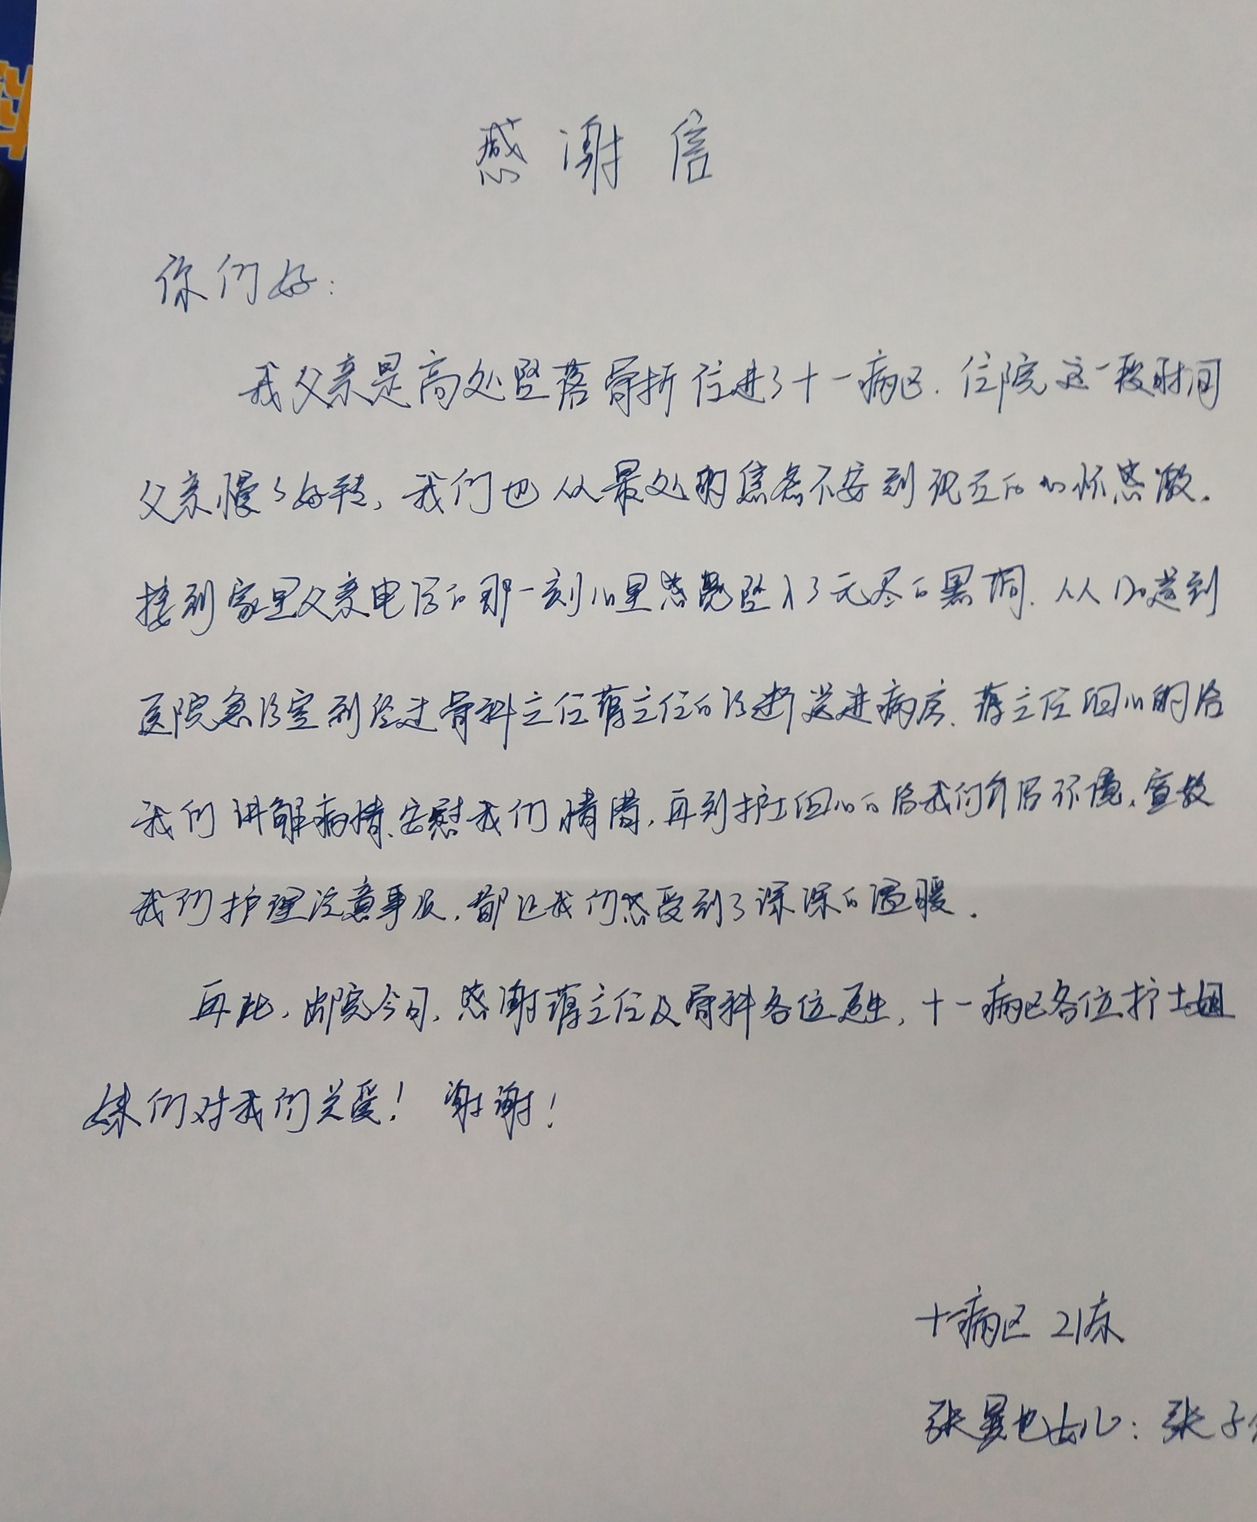 感谢信
你们好：
我父亲是高处坠落骨折住进了十一病区.住院这一段时间
父亲慢々好转,我们也从最处的焦虑不安到现在的心怀感激.
接到家里父亲电话的那一刻心里感觉坠入了无尽的黑洞.从人们送到
医院急诊室到经过骨科主任薛主任的诊断送进病房.薛主任细心的给
我们讲解病情、安慰我们情绪,再到护士细心的给我们介绍环境.宣教
我们护理注意事项,都让我们感受到了深深的温暖.
再此,出院今习,感谢薛主任及骨科各位医生,十一病区各位护士姐
妹们对我们关爱!谢谢!
十一病区 21床
女儿:张子